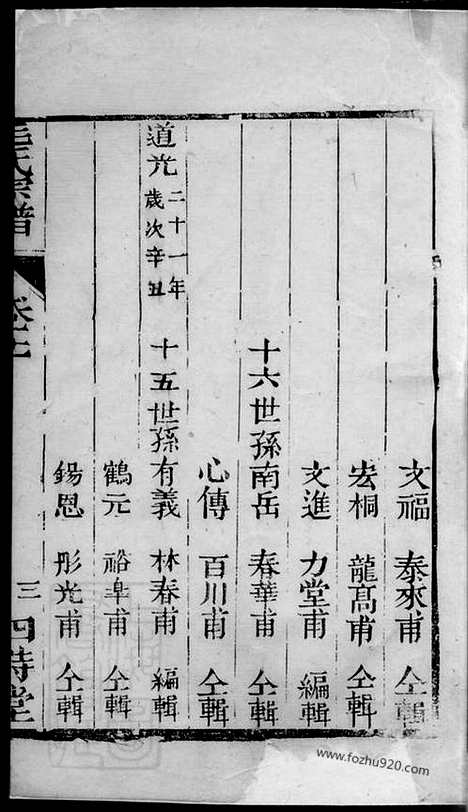 文福 泰來甫 仝輯
宏桐 龍高甫 仝輯
文進 力堂甫 編輯
十六世孫南岳 春華甫 仝輯
心傳 百川甫 仝輯
道光二十一年歲次辛丑 十五世孫有義 林春甫 編輯
鶴元 裕皐甫 仝輯
錫恩 彤光甫 仝輯
氏宗譜 三 四時堂
www.fozhu920.com